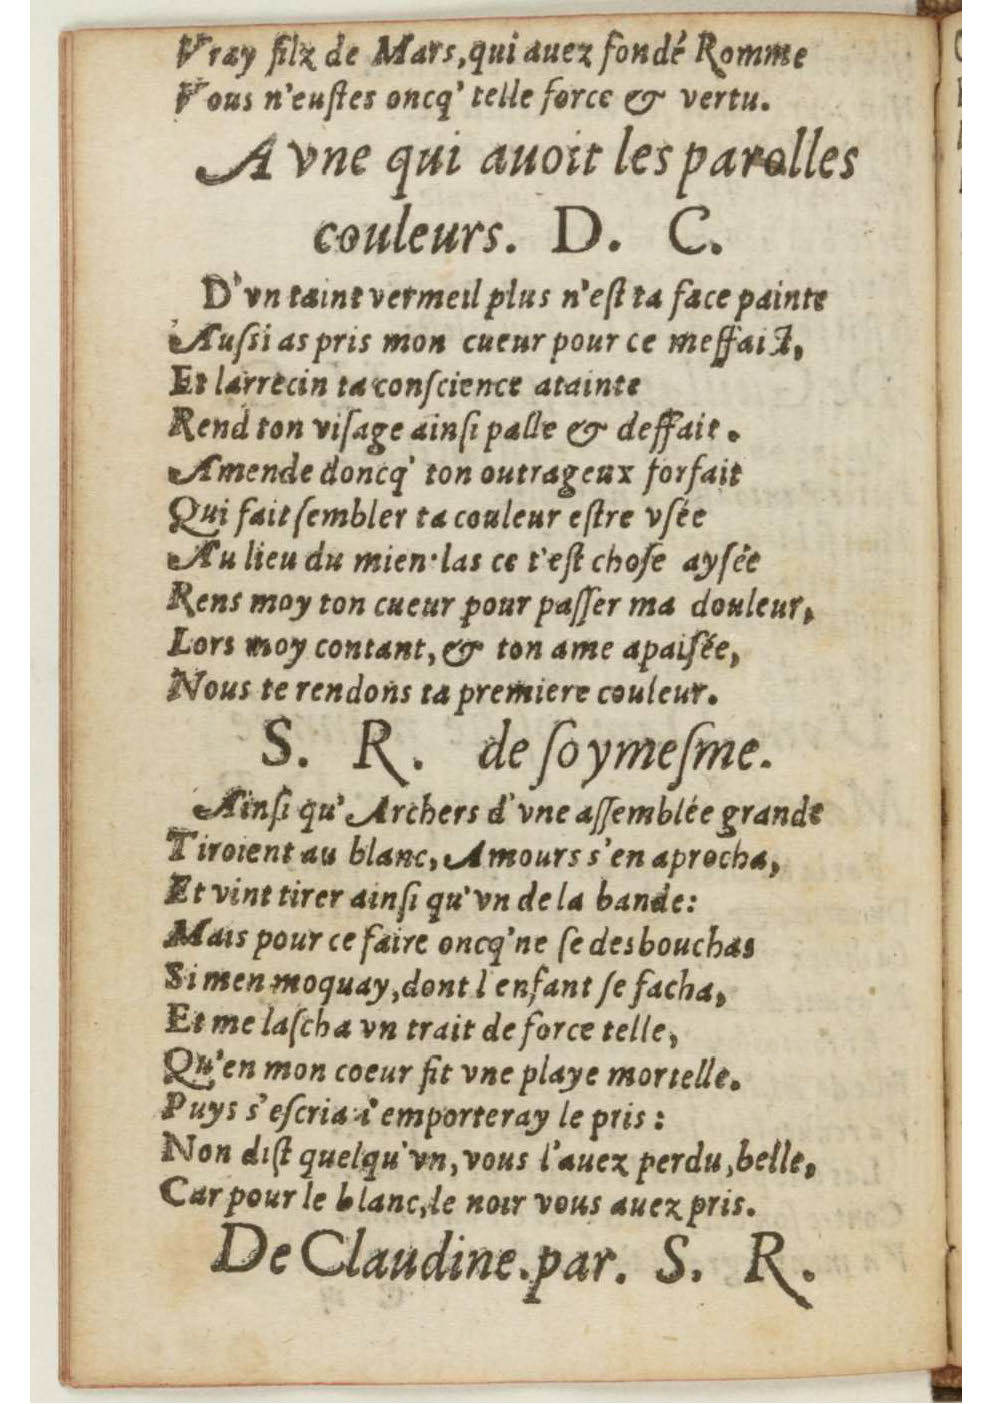 Vray filz de Mars, qui auez fondé Romme
Vous n'euſtes oncq' telle force & vertu.
A vne qui auoit les parolles
couleurs. D. C.
D'vn taint vermeil plus n'eſt ta face painte
Auſsi as pris mon cueur pour ce meffaict,
Et larrecin ta conſcience atainte
Rend ton viſage ainſi palle & deffait.
Amende doncq' ton outrageux forfait
Qui fait ſembler ta couleur eſtre vſée
Au lieu du mien·las ce t'eſt choſe ayſée
Rens moy ton cueur pour paſſer ma douleur,
Lors moy contant, & ton ame apaiſée,
Nous te rendons ta premiere couleur.
S. R. de ſoymeſme.
Ainſi qu' Archers d'vne aſſemblée grande
Tiroient au blanc, Amours s'en aprocha,
Et vint tirer ainſi qu'vn de la bande:
Mais pour ce faire oncq'ne ſe desbouchas
Si men moquay, dont l enfant ſe facha,
Et me laſcha vn trait de force telle,
Qu'en mon coeur fit vne playe mortelle.
Puys s'eſcria i'emporteray le pris:
Non diſt quelqu'vn, vous l'auez perdu, belle,
Car pour le blanc, le noir vous auez pris.
De Claudine. par. S. R.